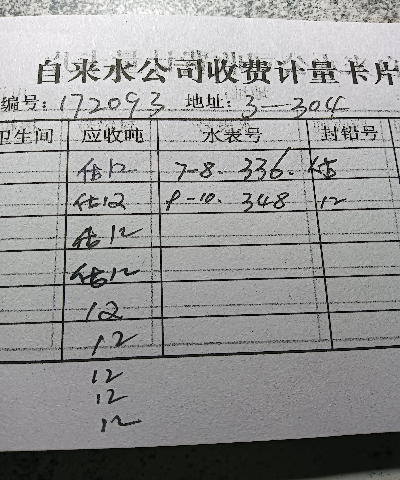 自来水公司收费计量卡片
编号：172093 地址：3—304
卫生间 应收吨 水表号 封铅号
估12 7-8. 336. 估
估12 9-10. 348 12
估12
估12
12
12
12
12
12